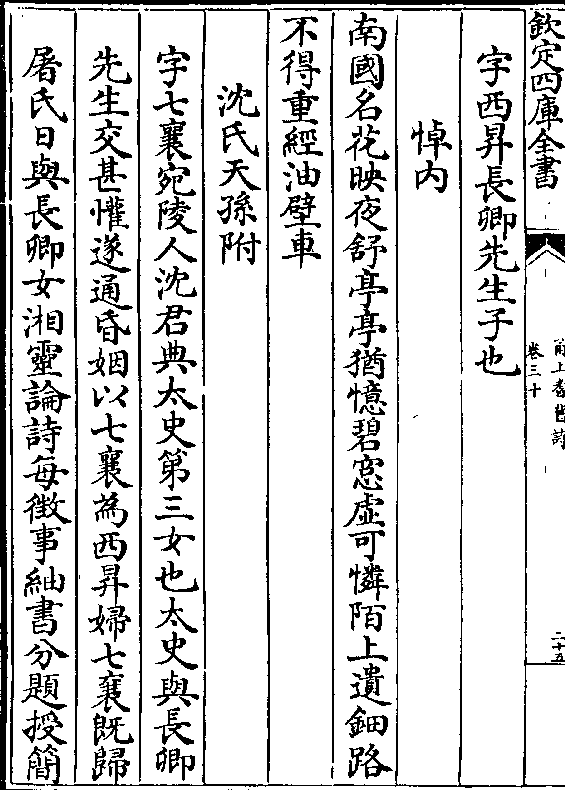 欽定四庫全書
甬上耆舊詩
卷三十
二十五
字西昇長卿先生子也
悼内
南國名花映夜舒亭亭猶憶碧窓虛可憐陌上遺鈿路
不得重經油壁車
沈氏天孫附
字七襄宛陵人沈君典太史第三女也太史與長卿
先生交甚懽遂通昏姻以七襄為西昇婦七襄既歸
屠氏日與長卿女湘靈論詩每徵事紬書分題授簡